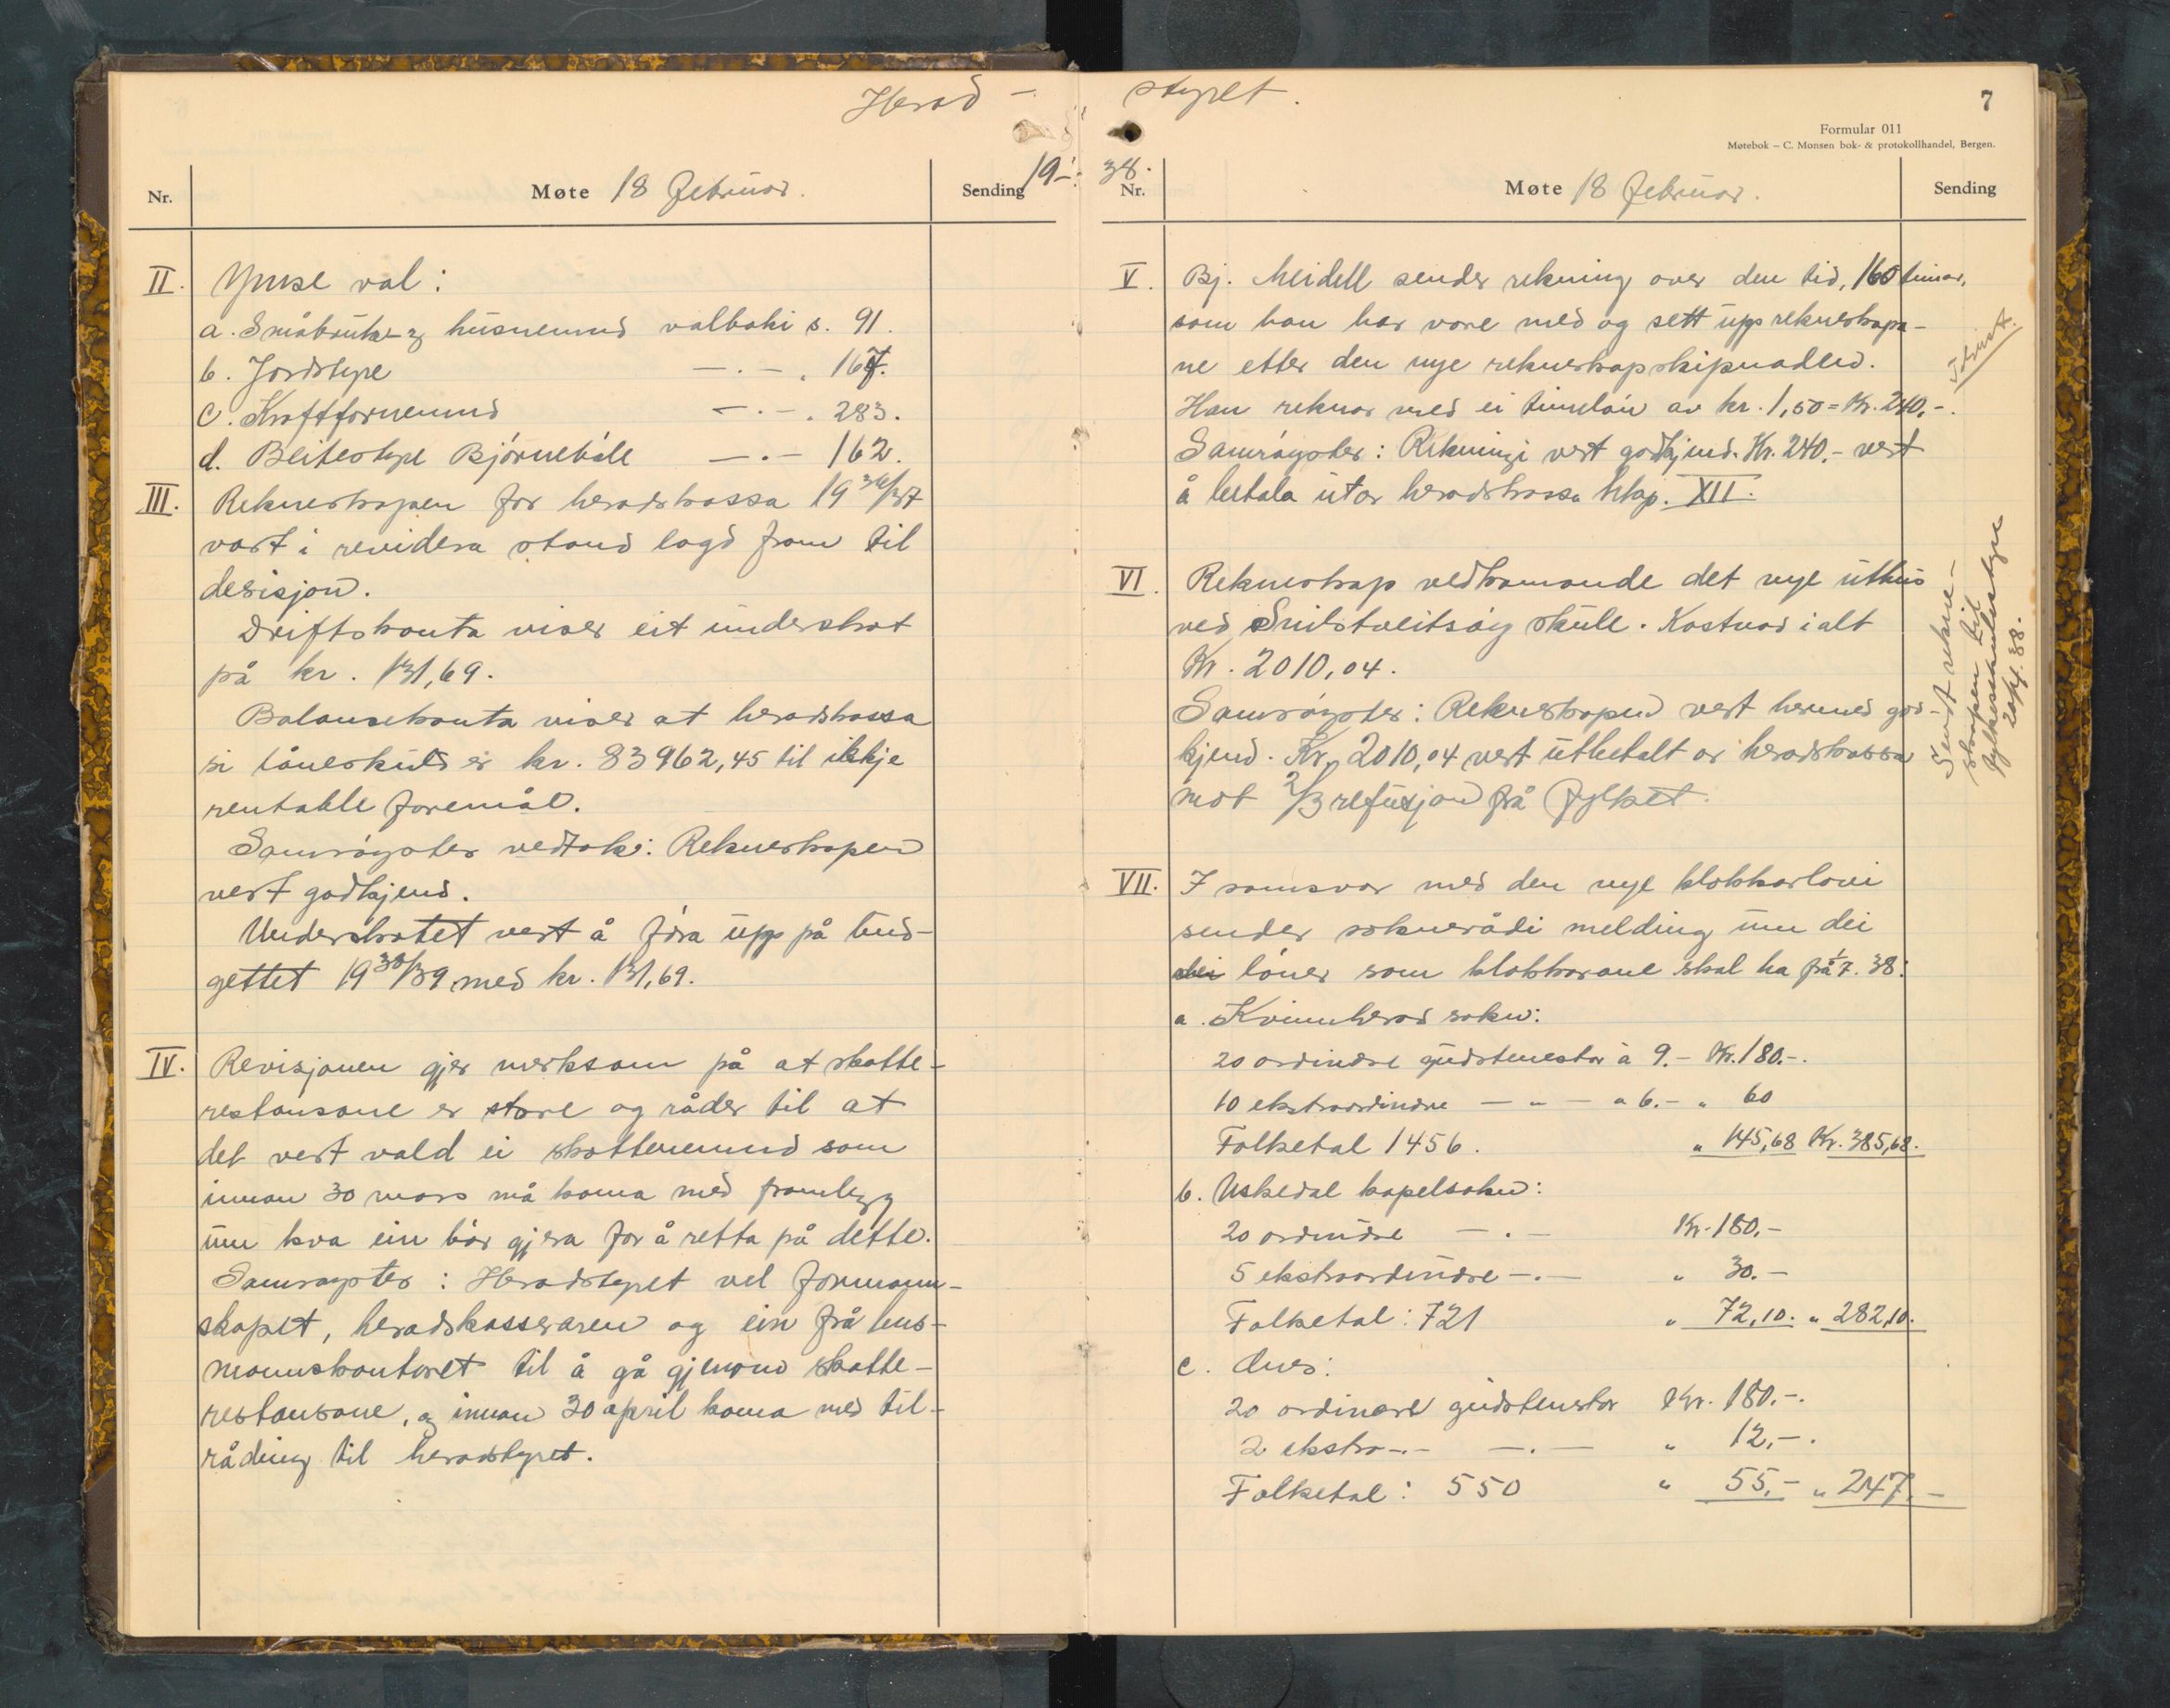 Herad - styret.
7
Formular 011
Møtebok – C. Monsen bok- & protokollhandel, Bergen.
19-:- 38.
Nr.
Møte 18 februar.
Sending
II. Ymse val:
a. Småbruks- og husnemnd valboki s. 91.
b. Jordstyre —.—. 167.
c. Kraftfornemnd —.—. 283.
d. Beitestyre Bjørnebåle —.— 162.
III. Rekneskapen for heradskassa 1936/37
vart i revidera stand lagd fram til
desisjon.
Driftskonta viser eit underskot
på kr. 131,69.
Balansekonta viser at heradskassa
si låneskuld er kr. 83962,45 til ikkje
rentable foremål.
Samrøystes vedtak: Rekneskapen
vert godkjend.
Underskotet vert å føra upp på bud-
gettet 1938/39 med kr. 131,69.
IV. Revisjonen gjer merksam på at skatte-
restansane er store og råder til at
det vert vald ei skattenemnd som
innan 30 mars må koma med framlegg
um kva ein bør gjera for å retta på dette.
Samrøystes: Heradstyret vel formann-
skapet, heradskasseraren og ein frå lens-
mannskontoret til å gå gjenom skatte-
restansane, og innan 30 april koma med til-
råding til heradstyret.
Nr.
Møte 18 februar.
Sending
V. Bj. Meidell sender rekning over den tid, 160 timar,
som han har vore med og sett upp rekneskapa-
ne etter den nye rekneskapskipnaden.
Han reknar med ei timeløn av kr. 1,50 = Kr. 240,-.
Samrøystes: Rekningi vert godkjend. Kr. 240.- vert
å betala utor heradskassa kap. XII.
VI. Rekneskap vedkomande det nye uthus
ved Snilstveitsøy skule. Kostnad i alt
Kr. 2010,04.
Samrøystes: Rekneskapen vert hermed god-
kjend. Kr. 2010,04 vert utbetalt or heradskassa
mot 2/3 refusjon frå fylket.
Sendt rekne-
skapen til
fylkesskulestyre
20/4.38.
VII. I samsvar med den nye klokkarlovi
sender soknerådi melding um dei
løner som klokkarane skal ha frå 1/7. 38:
a. Kvinnherad sokn:
20 ordinære gudstenestor à 9.- Kr. 180.-.
10 ekstraordinære — „ — à 6.- „ 60
Folketal 1456. „ 145,68 Kr. 385,68.
b. Uskedal kapelsokn:
20 ordinære — . — Kr. 180.-
5 ekstraordinære —.— „ 30.-
Folketal: 721 „ 72,10. „ 282,10.
c. Ænes:
20 ordinære gudstenestor Kr. 180.-.
2 ekstra —.— —.— „ 12,-.
Folketal: 550 „ 55,- „ 247,-